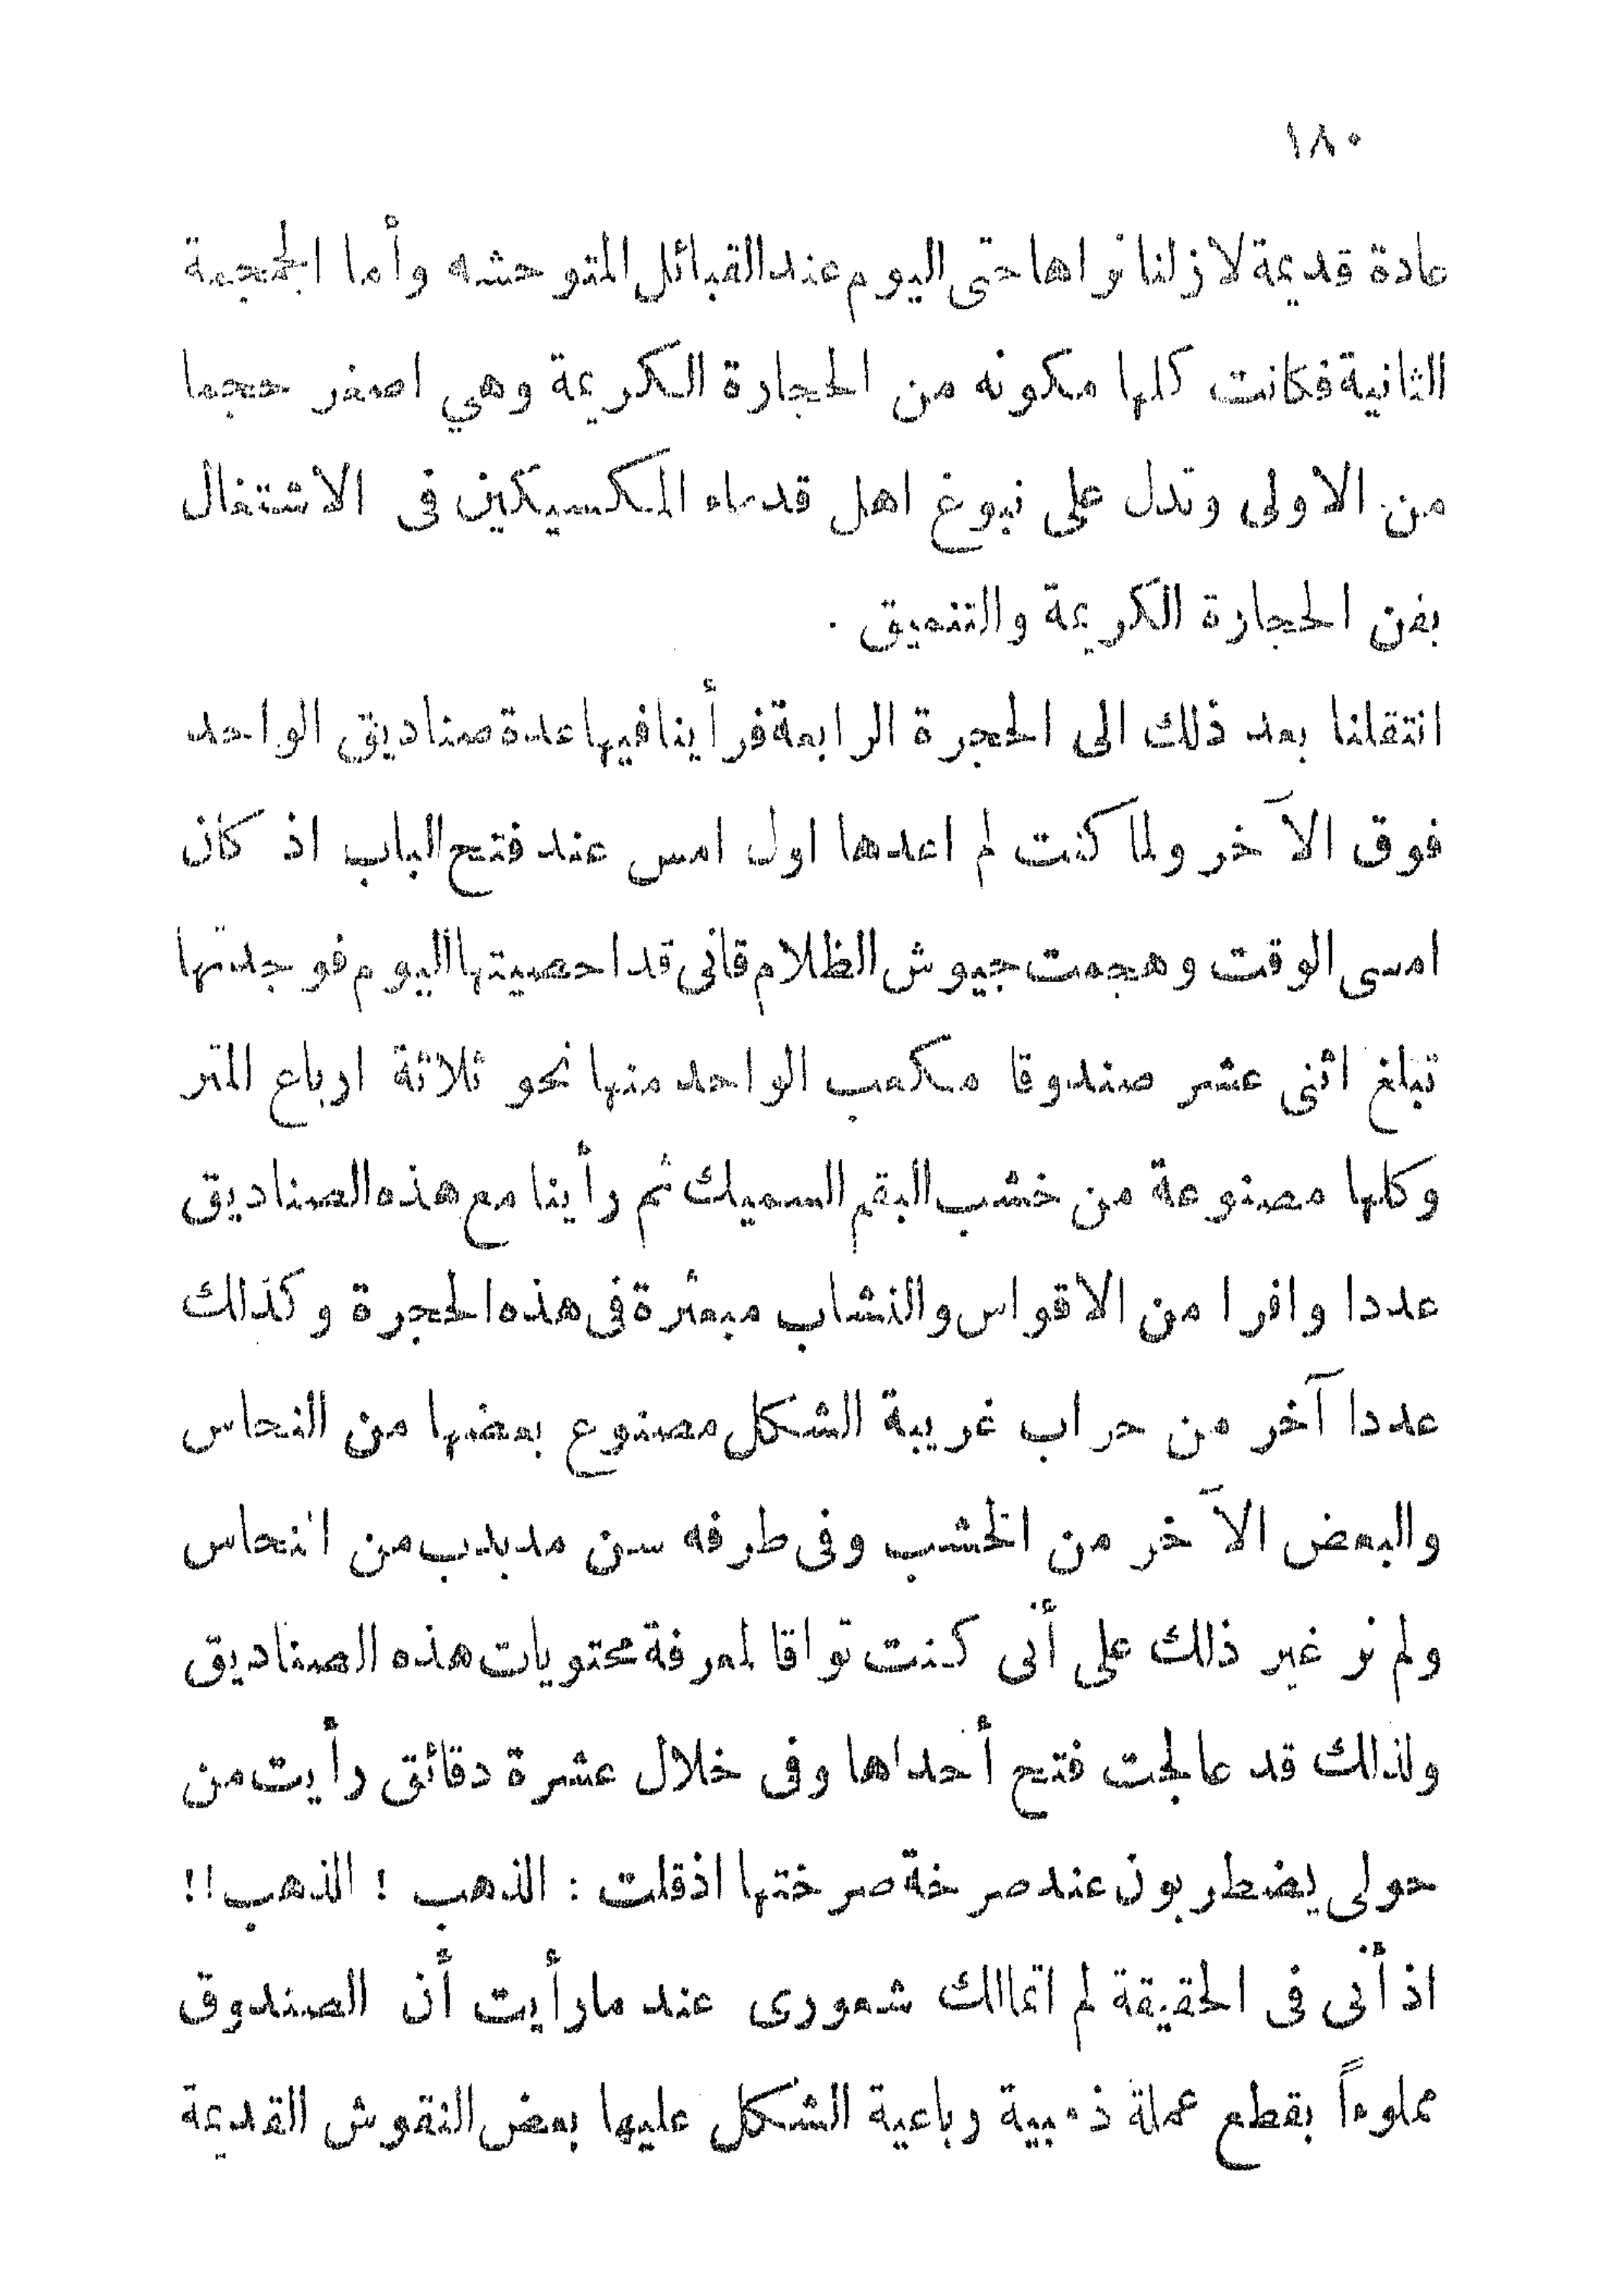 ١٨٠
عادة قديمة لازلنا نراها حتى اليوم عند القبائل المتوحشه وأما الجمجمة
الثانية فكانت كلها مكونه من الحجارة الكريمة وهي اصغر حجما
من الاولى وتدل على نبوغ اهل قدماء المكسيكين فى الاشتغال
بفن الحجارة الكريمة والتنميق .
انتقلنا بعد ذلك الى الحجرة الرابعة فرأينا فيها عدة صناديق الواحد
فوق الآخر ولما كنت لم اعدها اول امس عند فتح الباب اذ كان
امسى الوقت وهجمت جيوش الظلام قانى قد احصيتها اليوم فوجدتها
تبلغ اثنى عشر صندوقا مكعب الواحد منها نحو ثلاثة ارباع المتر
وكلها مصنوعة من خشب البقم السميك ثم رأينا مع هذه الصناديق
عددا وافرا من الاقواس والنشاب مبعثرة فى هذه الحجرة وكذلك
عددا آخر من حراب غريبة الشكل مصنوع بعضها من النحاس
والبعض الآخر من الخشب وفى طرفه سن مدبدب من النحاس
ولم نر غير ذلك على أنى كنت تواقا لمعرفة محتويات هذه الصناديق
ولذلك قد عالجت فتح أحداها وفى خلال عشرة دقائق رأيت من
حولى يضطربون عند صرخة صرختها اذ قلت : الذهب ! الذهب !!
اذ أنى فى الحقيقة لم اتمالك شعورى عند ما رأيت أن الصندوق
مملوءاً بقطع عملة ذهبية رباعية الشكل عليها بعض النقوش القديمة